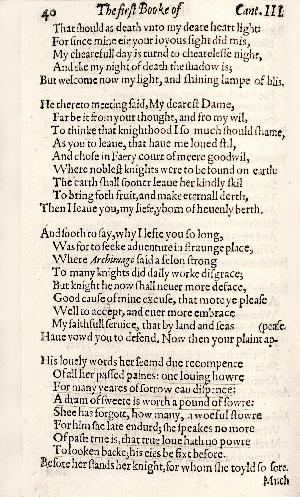 40 The first Booke of Cant. III.
That should as death vnto my deare heart light:
For since mine eie your ioyous sight did mis,
My chearefull day is turnd to chearelesse night,
And eke my night of death the shadow is;
But welcome now my light, and shining lampe of blis.
He thereto meeting said, My dearest Dame,
Far be it from your thought, and fro my wil,
To thinke that knighthood I so much should shame,
As you to leaue, that haue me loued stil,
And chose in Faery court of meere goodwil,
Where noblest knights were to be found on earth:
The earth shall sooner leaue her kindly skil
To bring forth fruit, and make eternall derth,
Then I leaue you, my liefe, yborn of heuenly berth.
And sooth to say, why I lefte you so long,
Was for to seeke aduenture in straunge place,
Where Archimago said a felon strong
To many knights did daily worke disgrace;
But knight he now shall neuer more deface,
Good cause of mine excuse, that mote ye please
Well to accept, and euer more embrace
My faithfull seruice, that by land and seas (pease.
Haue vowd you to defend, Now then your plaint ap-
His louely words her seemd due recompence
Of all her passed paines: one louing howre
For many yeares of sorrow can dispence:
A dram of sweete is worth a pound of sowre:
Shee has forgott, how many, a woeful stowre
For him she late endurd; she speakes no more
Of past: true is, that true loue hath no powre
To looken backe; his eies be fixt before.
Before her stands her knight, for whom she toyld so sore.
Much